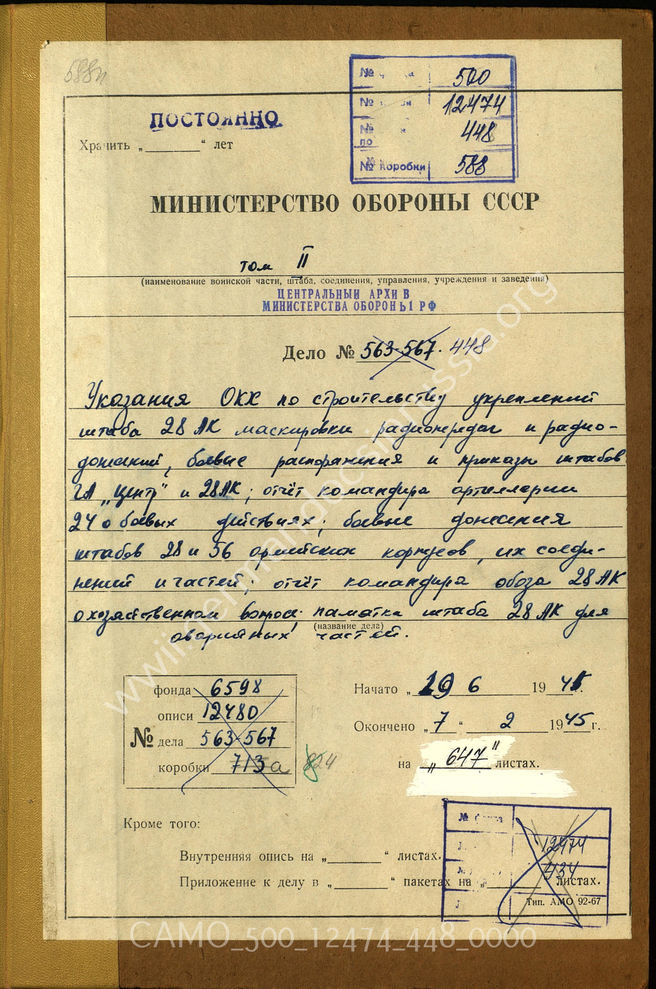 588л
№ 500
№ 12474
№ 448
по
№ коробки 588
ПОСТОЯННО
Хранить „ “ лет
МИНИСТЕРСТВО ОБОРОНЫ СССР
том II
(наименование воинской части, штаба, соединения, управления, учреждения и заведения)
ЦЕНТРАЛЬНЫЙ АРХИВ
МИНИСТЕРСТВА ОБОРОНЫ РФ
Дело № 563-567. 448
Указания ОКХ по строительству укреплений
штаба 28 АК маскировки радиопередач и радио-
донесений, боевые распоряжения и приказы штабов
ГА „Центр" и 28АК; отчёт командира артиллерии
24 о боевых действиях; боевые донесения
штабов 28 и 56 армейских корпусов, их соеди-
нений и частей; отчёт командира обоза 28 АК
о хозяйственном вопросе; памятка штаба 28 АК для
(название дела)
аварийных частей.
фонда 6598
описи 12480
№ дела 563-567
коробки 713а
Начато „ 29 6 19 41.
Окончено „ 7 “ 2 1945 г.
на „647" листах.
Кроме того:
Внутренняя опись на „ “ листах.
Приложение к делу в „ “ пакетах на „ листах.
№ фонда
12474
434
Тип. АМО 92-67
www.germandocsinrussia.org
CAMO_500_12474_448_0000